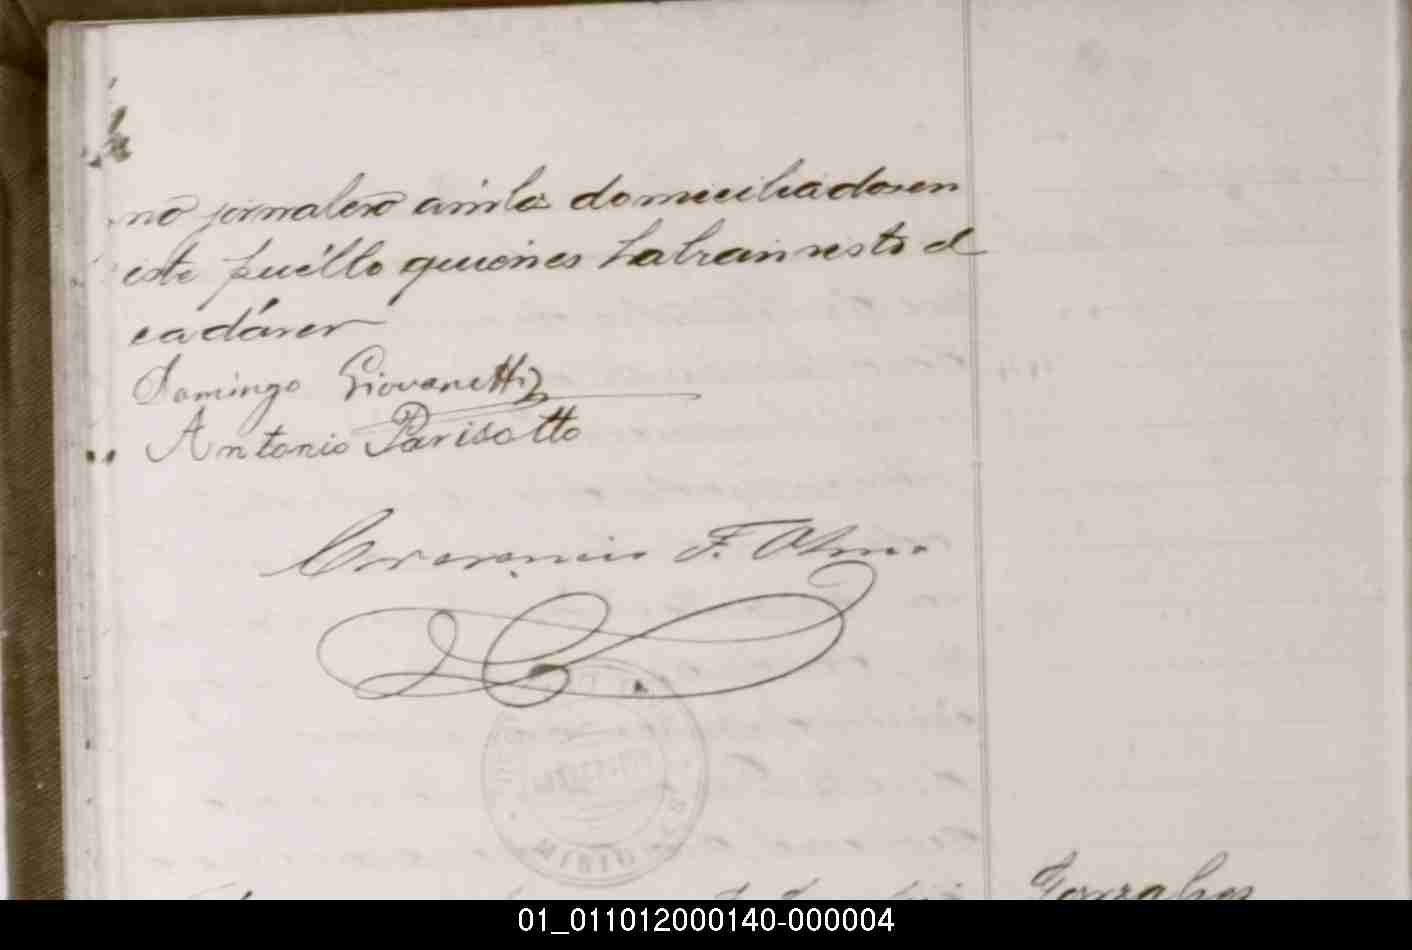 no jornalero ambos domiciliados en
este puéblo quienes habian visto el
cadáver
Domingo Giovanetti
Antonio Parisotto
F.
Gonzalez
01_011012000140-000004